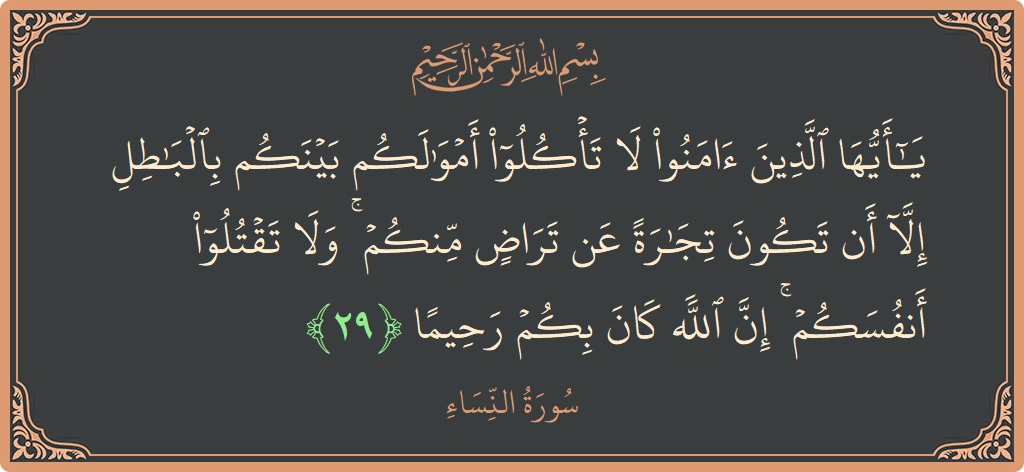 بِسْمِ اللَّهِ الرَّحْمَٰنِ الرَّحِيمِ
يَـٰٓأَيُّهَا ٱلَّذِينَ ءَامَنُوا۟ لَا تَأْكُلُوٓا۟ أَمْوَٰلَكُم بَيْنَكُم بِٱلْبَـٰطِلِ
إِلَّآ أَن تَكُونَ تِجَـٰرَةً عَن تَرَاضٍ مِّنكُمْ ۚ وَلَا تَقْتُلُوٓا۟
أَنفُسَكُمْ ۚ إِنَّ ٱللَّهَ كَانَ بِكُمْ رَحِيمًا ﴿٢٩﴾
سُورَةُ النِّسَاءِ